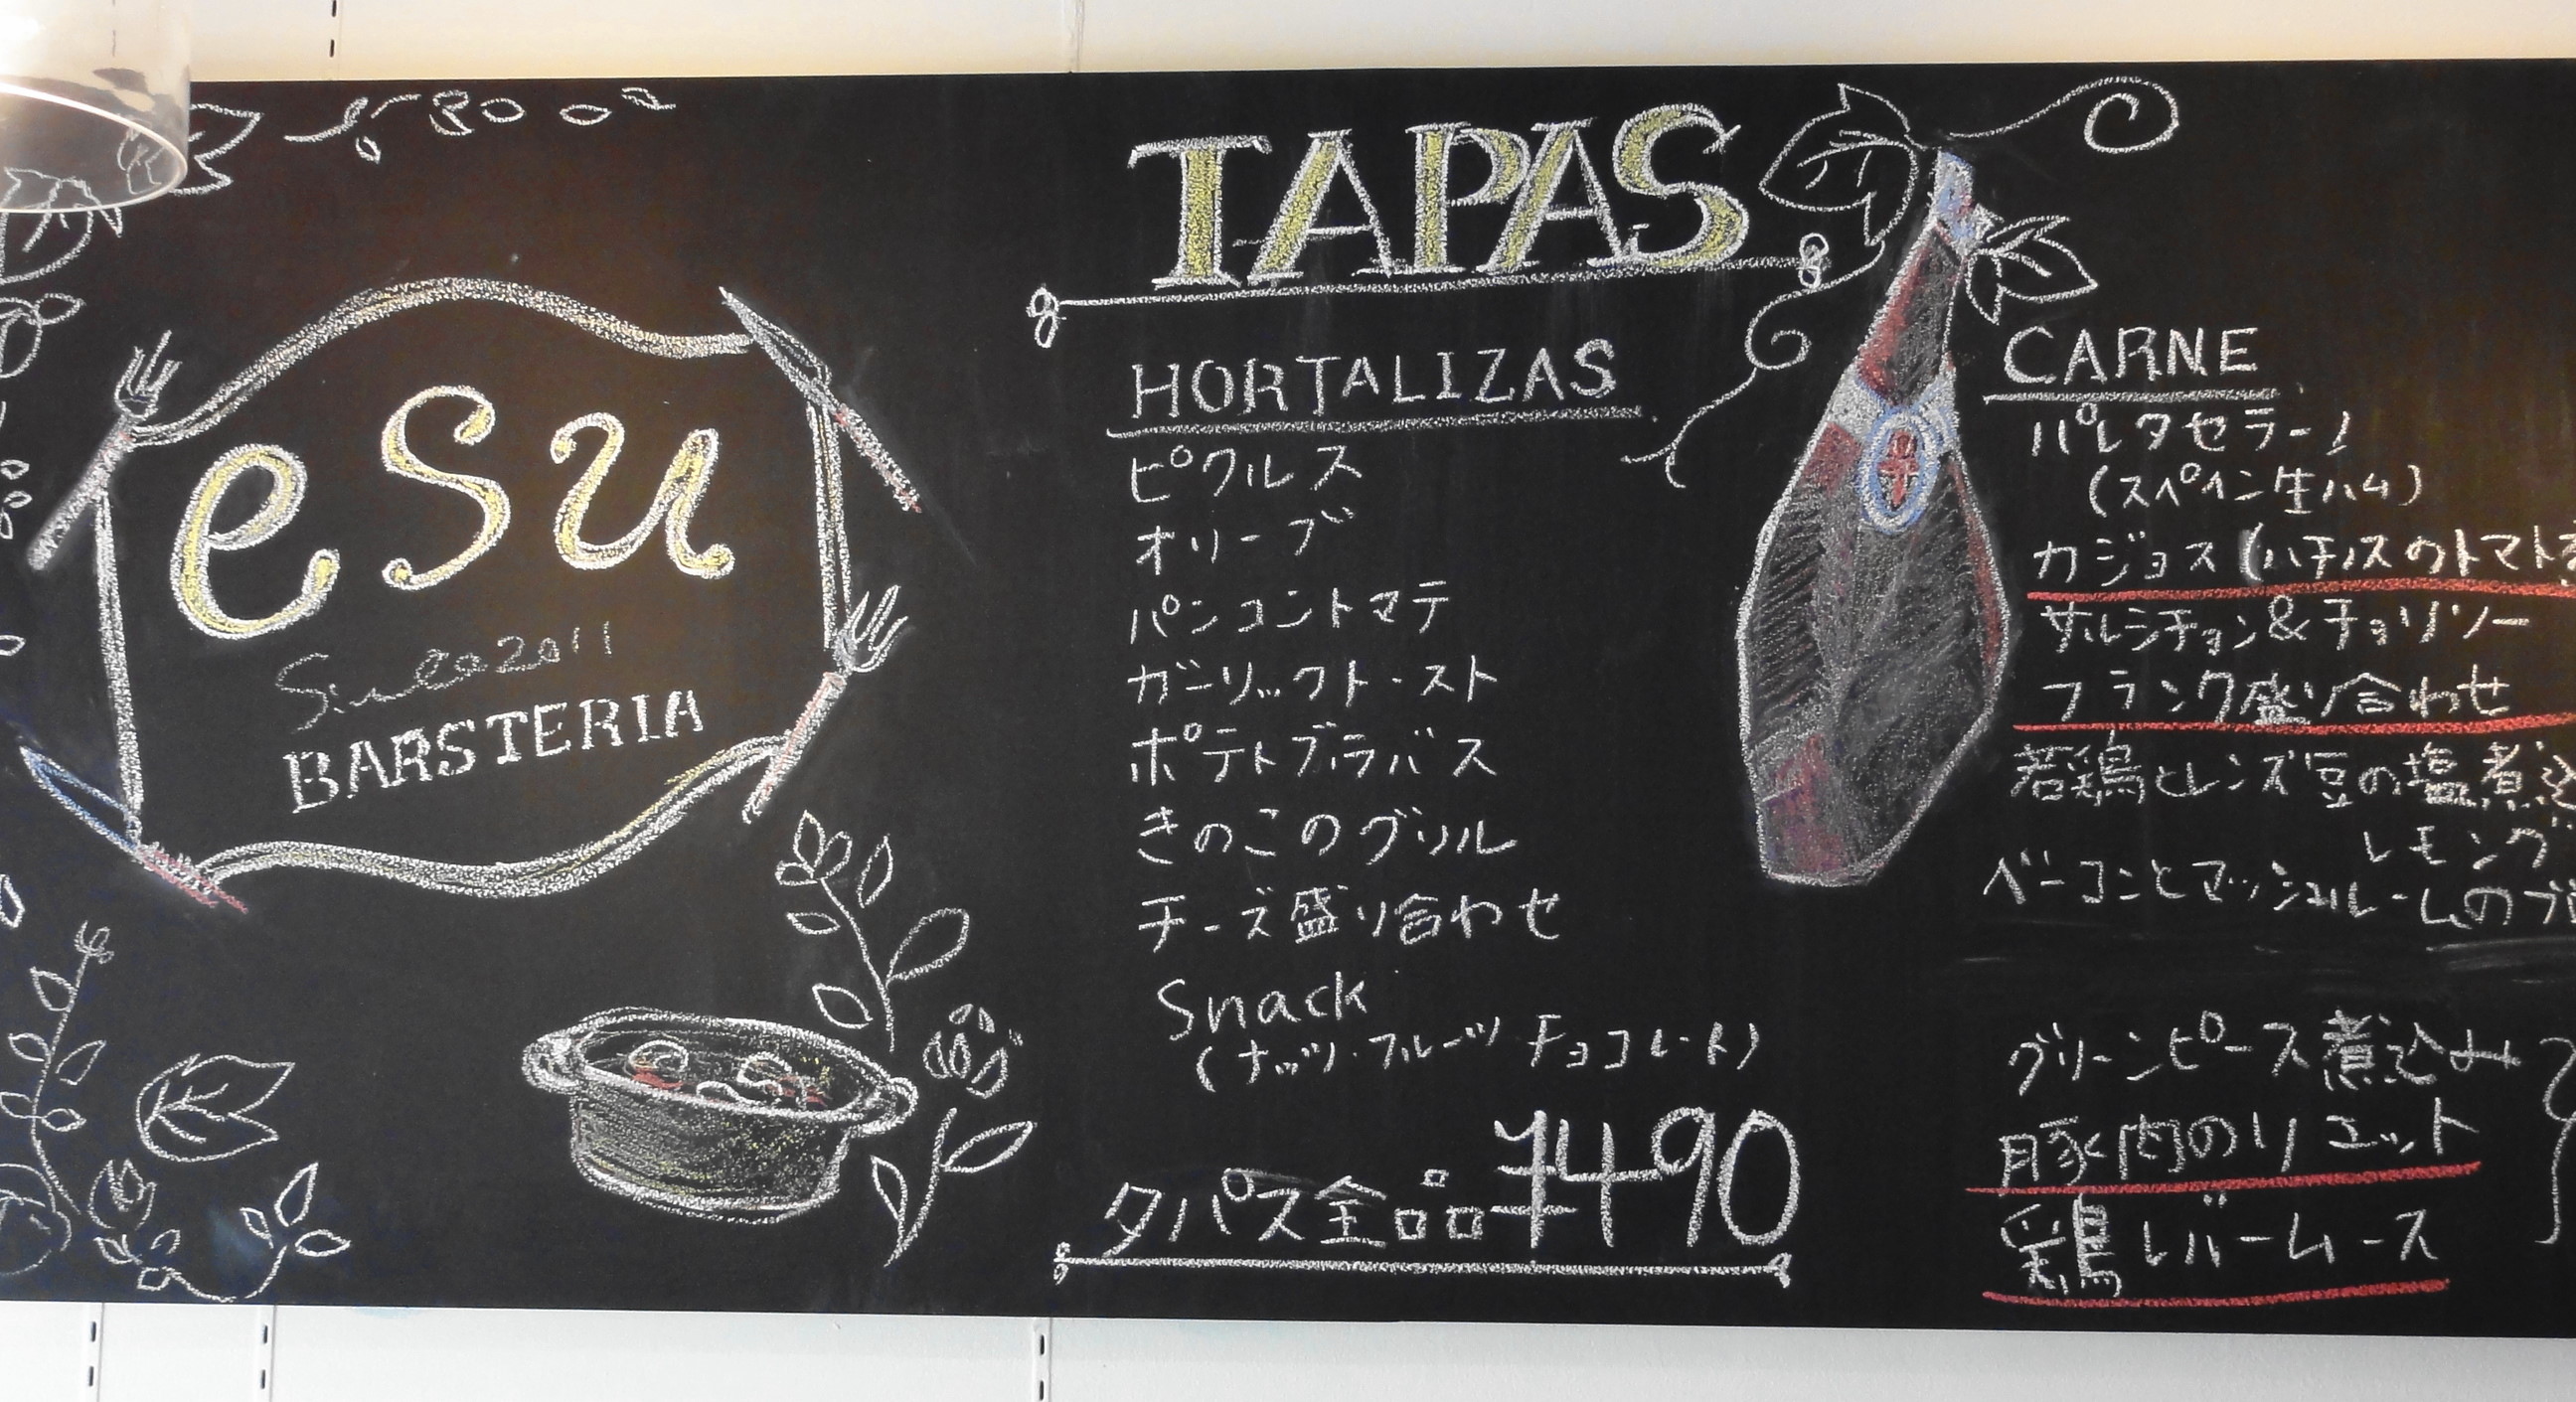 esu
2011
BARSTERIA
TAPAS
HORTALIZAS
ピクルス
オリーブ
パンコントマテ
ガーリックトースト
ポテトブラバス
きのこのグリル
チーズ盛り合わせ
Snack
(ナッツ・フルーツ チョコレート)
タパス全品¥490
CARNE
パレタセラーノ
(スペイン生ハム)
カジョス(ハチノスのトマト
サルシチョン&チョリソー
フランク盛り合わせ
若鶏とレンズ豆の塩煮込
レモング
ベーコンとマッシュルームのブ
グリーンピース煮込み
豚肉のリエット
鶏レバームース